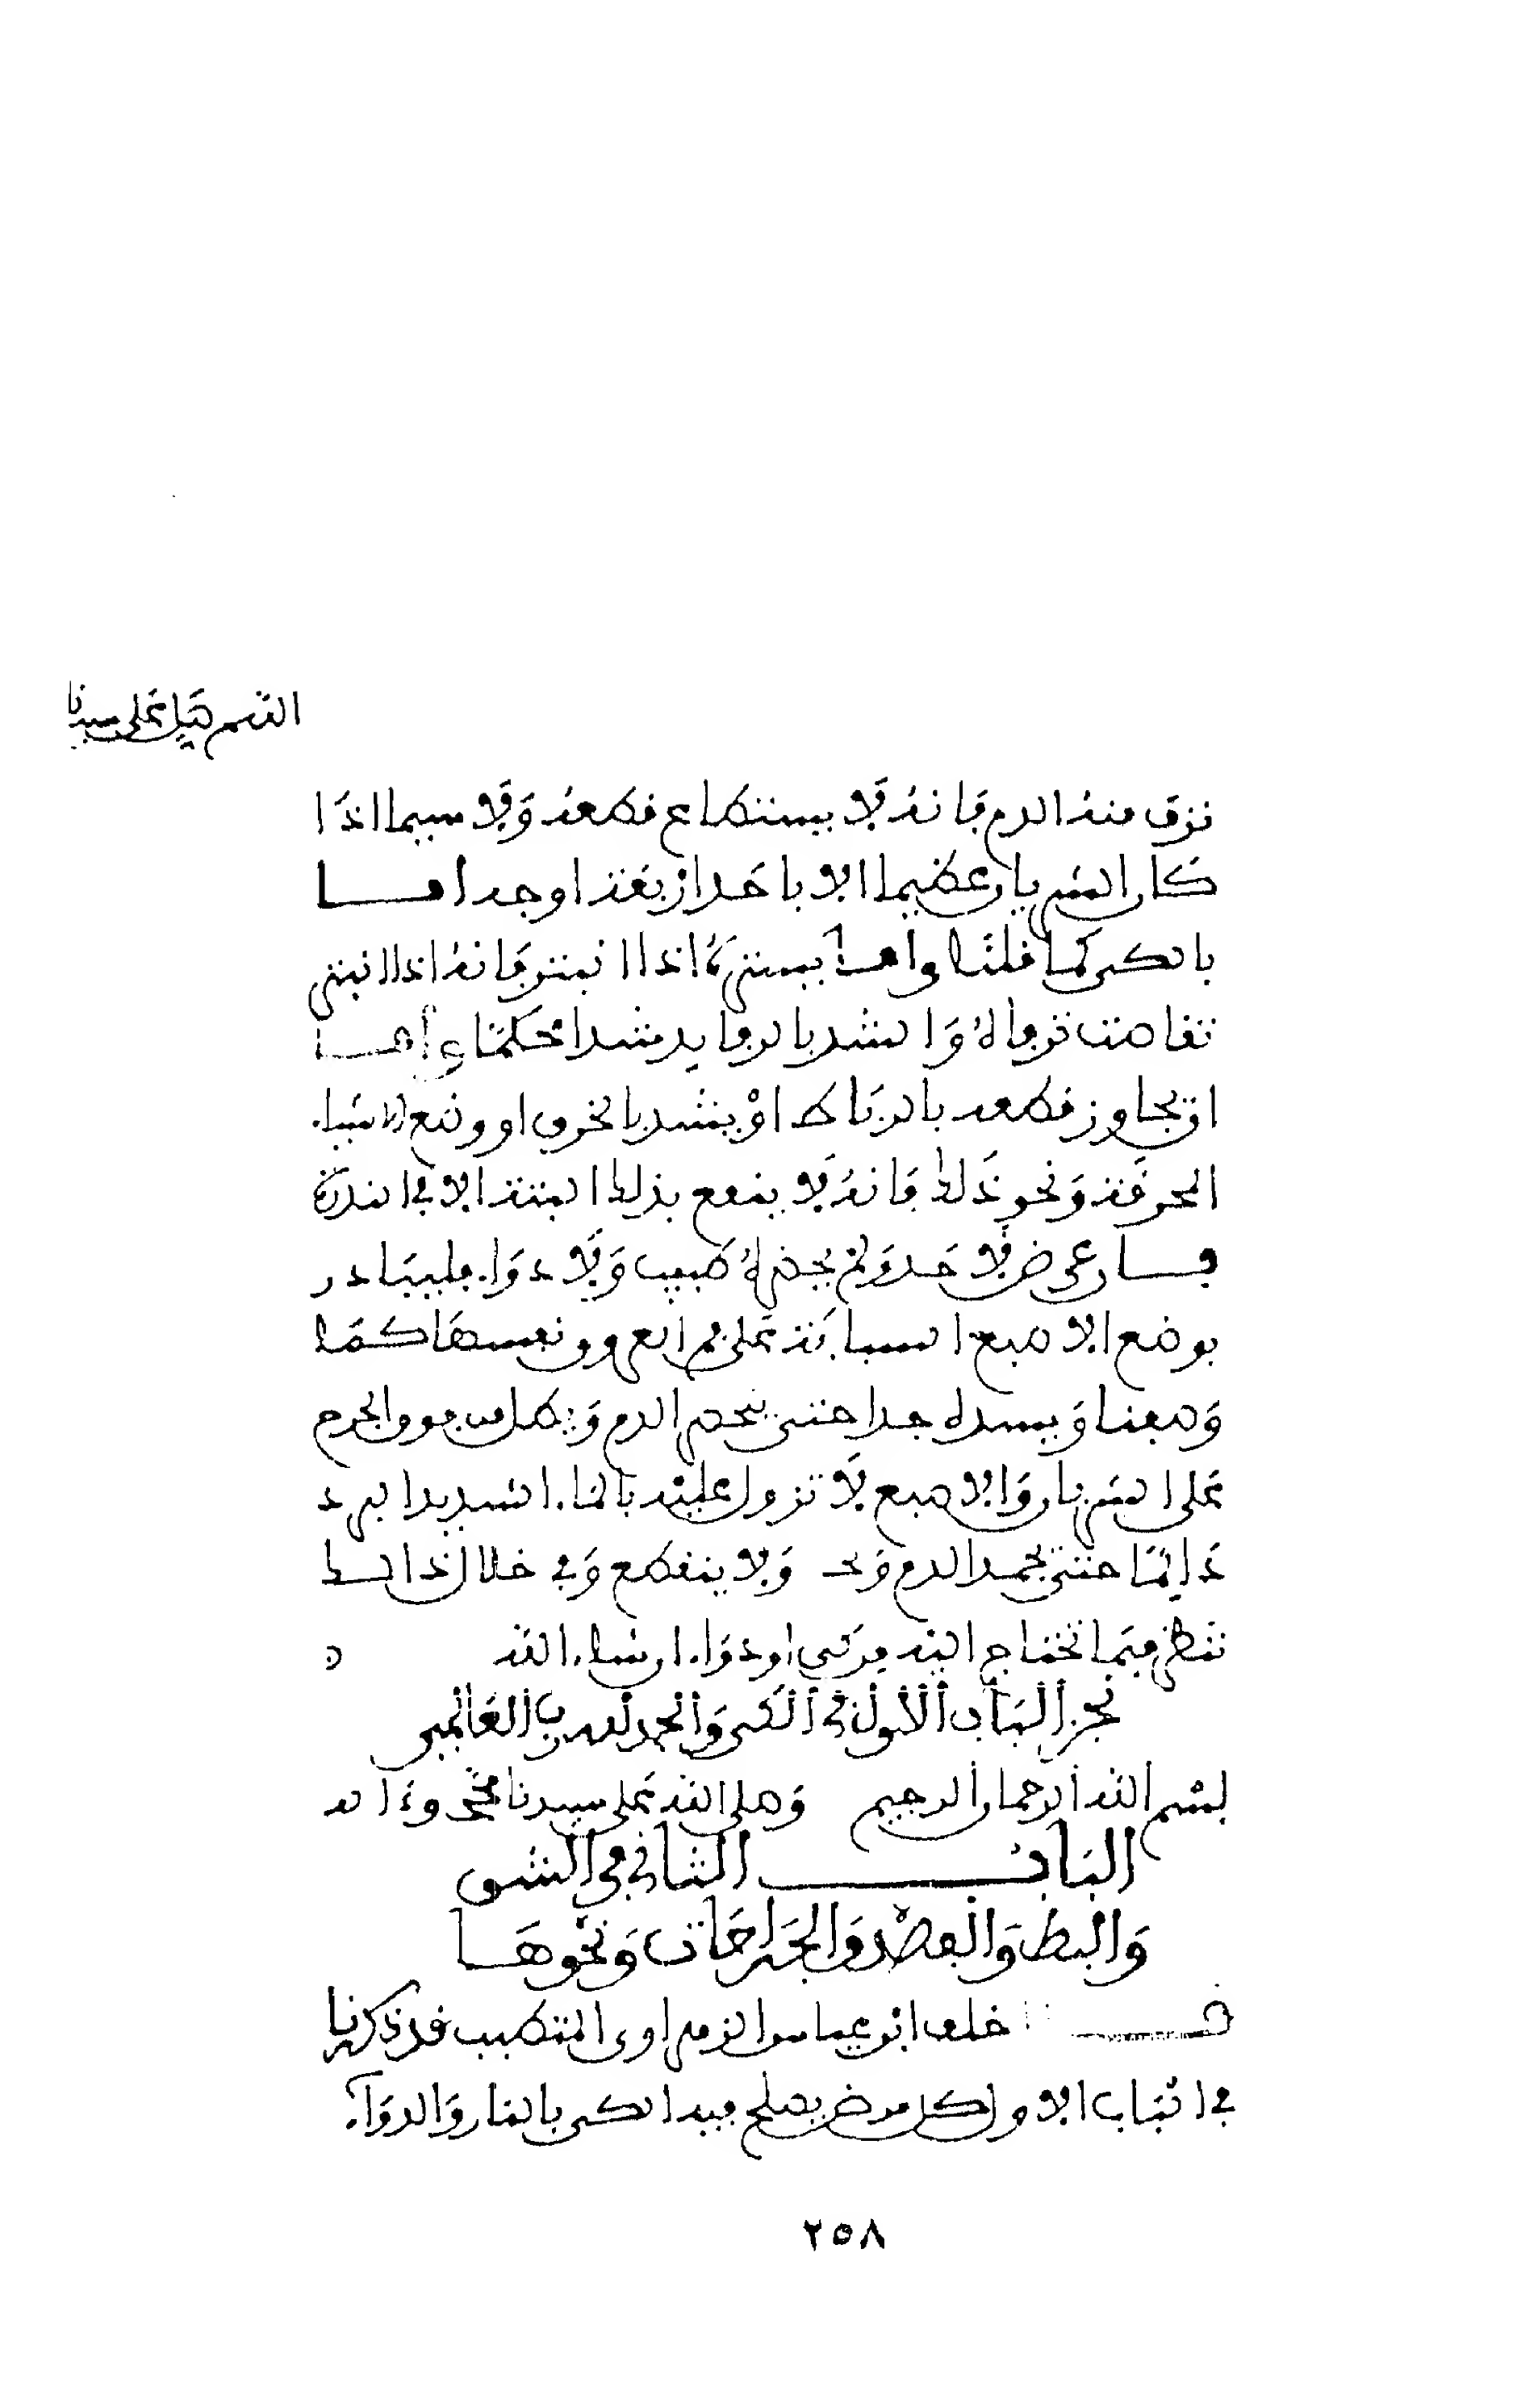 اللهم صل على سيدنا
نزف منه الدم فانه لا يستطاع قطعه ولا سيما اذا
كان الشريان عظيما الا باحد اربعة اوجه اما
بالكي كما قلنا واما ببتره اذا انبتر فانه اذا انبتر
تقلصت طرفاه والشد بالرفايد شدا محكما واما
ان تجاوز قطعه بالرباط او يشد بالخرق او وضع الاشياء
المحرقة ونحو ذلك فانه لا ينفع بذلك البتة الا في الندرة
فان عرض لاحد ولم يحضره طبيب ولا دواء فليبادر
بوضع الاصبع السبابة على فم العرق نفسها كما
وصفنا ويشده جدا حتى ينحصر الدم وينطل من فوق الجرح
على الشريان والاصبع لا تزول عليه بالماء الشديد البرد
دائما حتى يجمد الدم ولا ينقطع وفي خلال ذلك
تنظر فيما تحتاج اليه من كي او دواء ان شاء الله ه
نجز الباب الاول في الكي والحمد لله رب العالمين
بسم الله الرحمان الرحيم وصلى الله على سيدنا محمد وءاله
الباب الثاني في الشق
والبط والفصد والجراحات ونحوها
قال خلف ابن عباس الزهراوي المتطبب قد ذكرنا
في الباب الاول كل مرض يصلح فيه الكي بالنار والدواء
٢٥٨